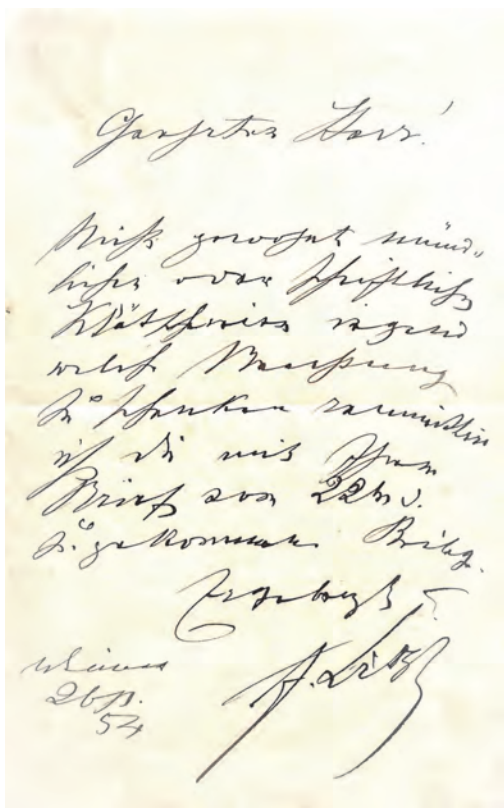 Geehrter Herr!
Nicht gewohnt münd-
lichen oder schriftlichen
Klätschereien irgend
welche Beachtung
zu schenken remittire
ich die mit Ihrem
Brief vom 22ten
zugekommene Beilag.
Ergebenst
F. Liszt
Weimar
54